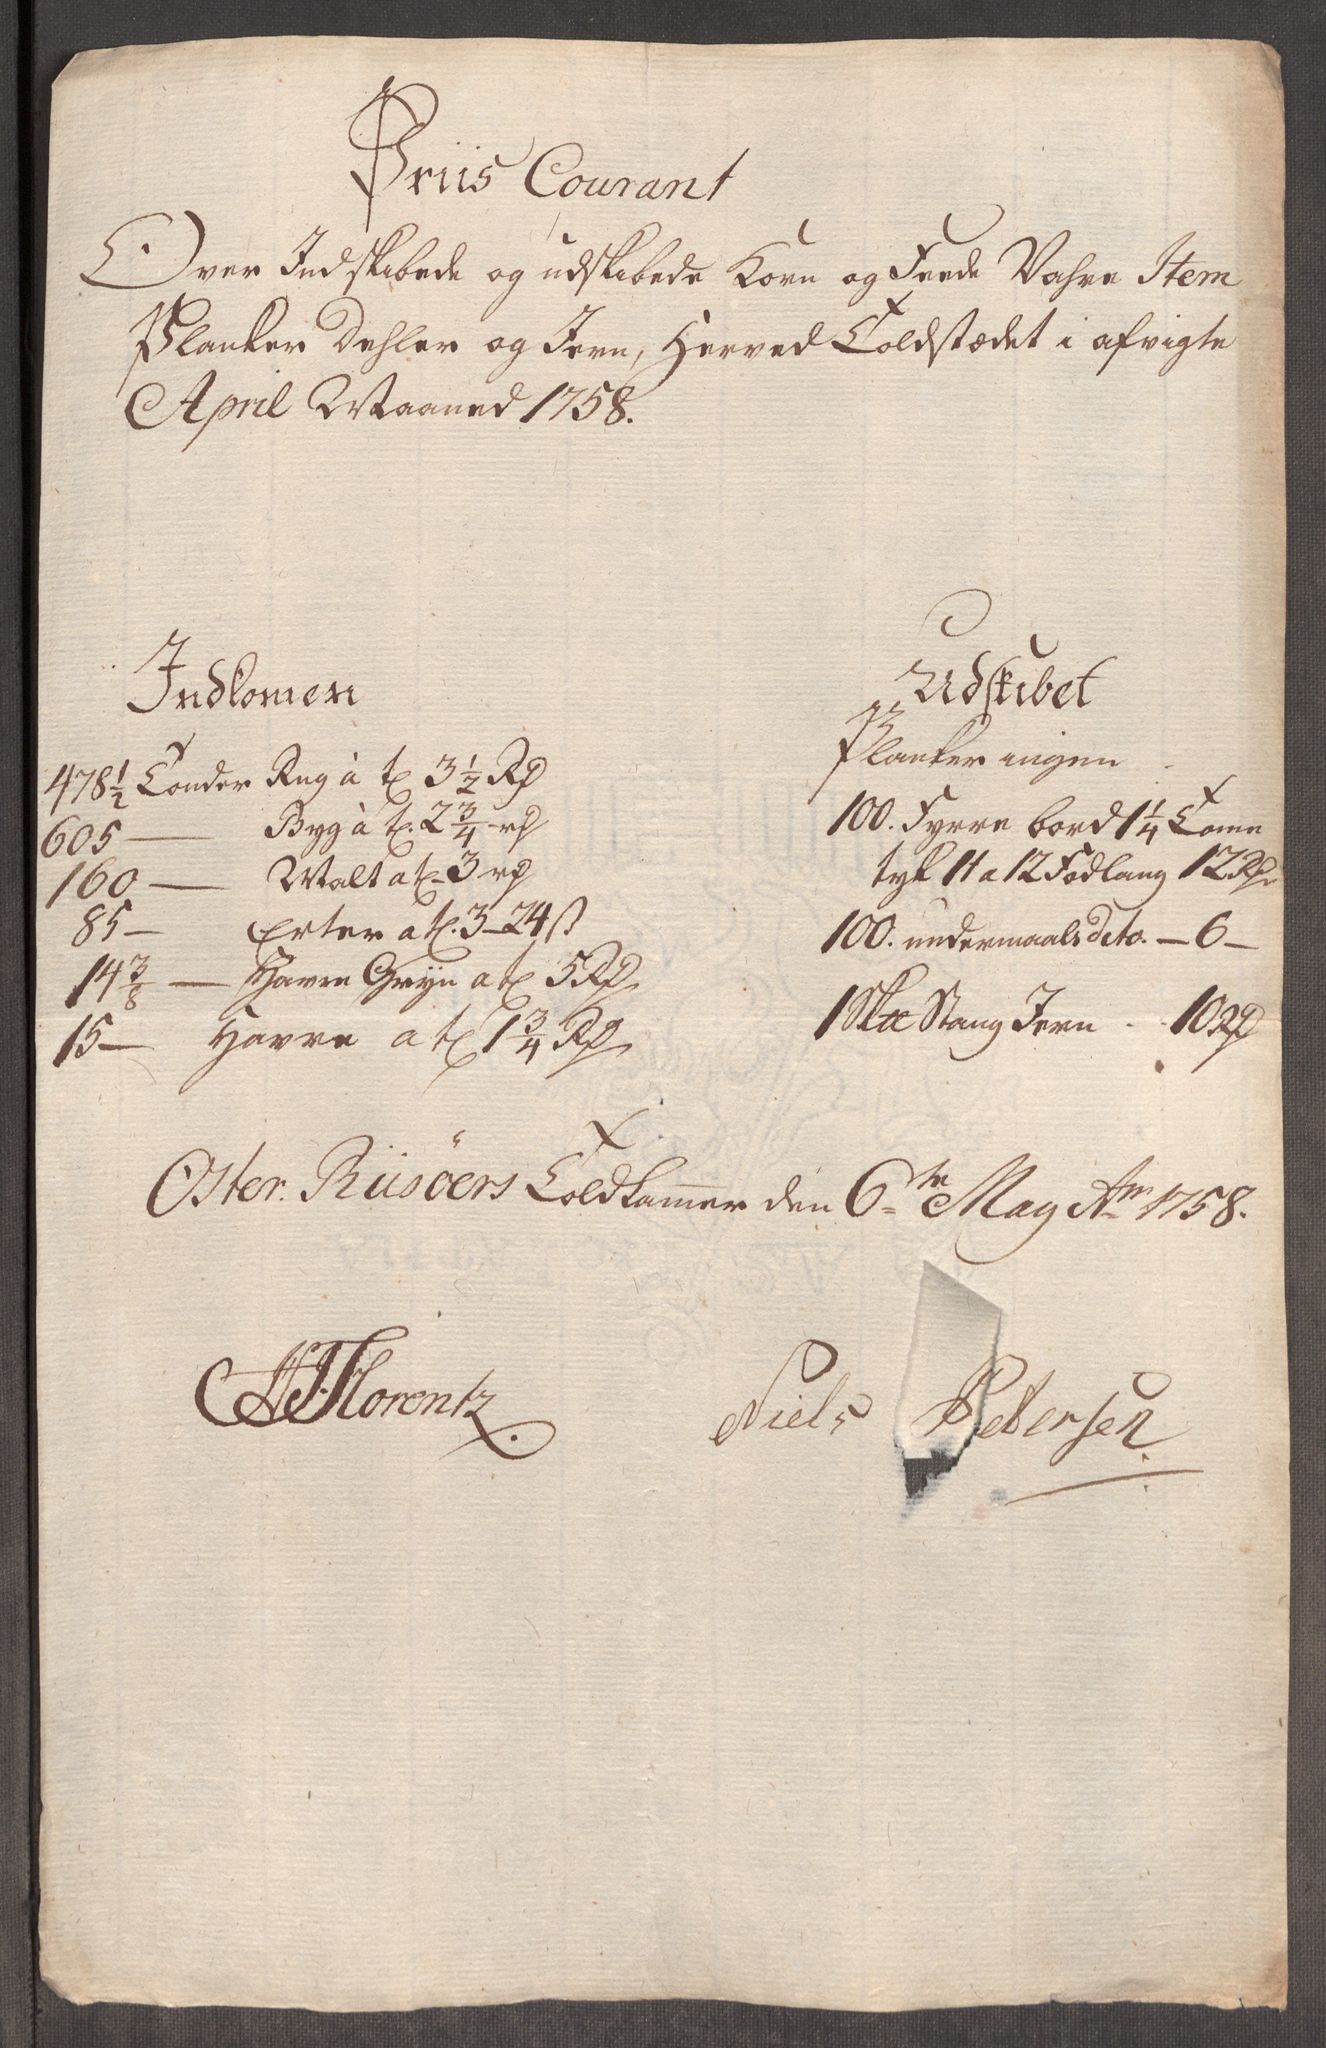 Priis Courant
Over Indskibede og udskibede Korn og Feede Vahre Item
Planker Dehler og Jern, Herved Toldstædet i afvigte
April Maaned 1758.
Indkomen
478 1/2 Tonder Rug à t 3 1/2 Rd
605 — Byg à t. 2 3/4 rd
160 — Malt a t. 3 rd
85 — Erter a t. 3 - 24 ß
14 3/8 — Havre Gryn a t 5 Rd
15 — Havre a t 1 3/4 Rd
Udskibet
Planker ingen
100. Fyrre bord 1 1/4 Tome
tyk 11 a 12 Fod lang 12 Rd
100. undermaals dito. — 6 —
1 Sk Stang Jern . . 10 Rd
Oster. Riisöers Toldkammer den 6te May Ao 1758.
Florentz
Niels Petersen